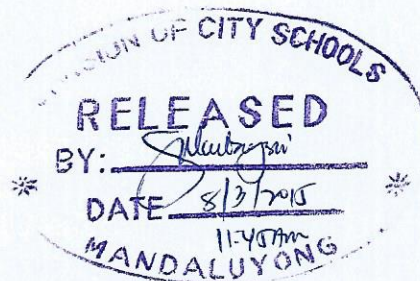 DIVISION OF CITY SCHOOLS
RELEASED
BY:
DATE 8/3/2015
11:45AM
MANDALUYONG